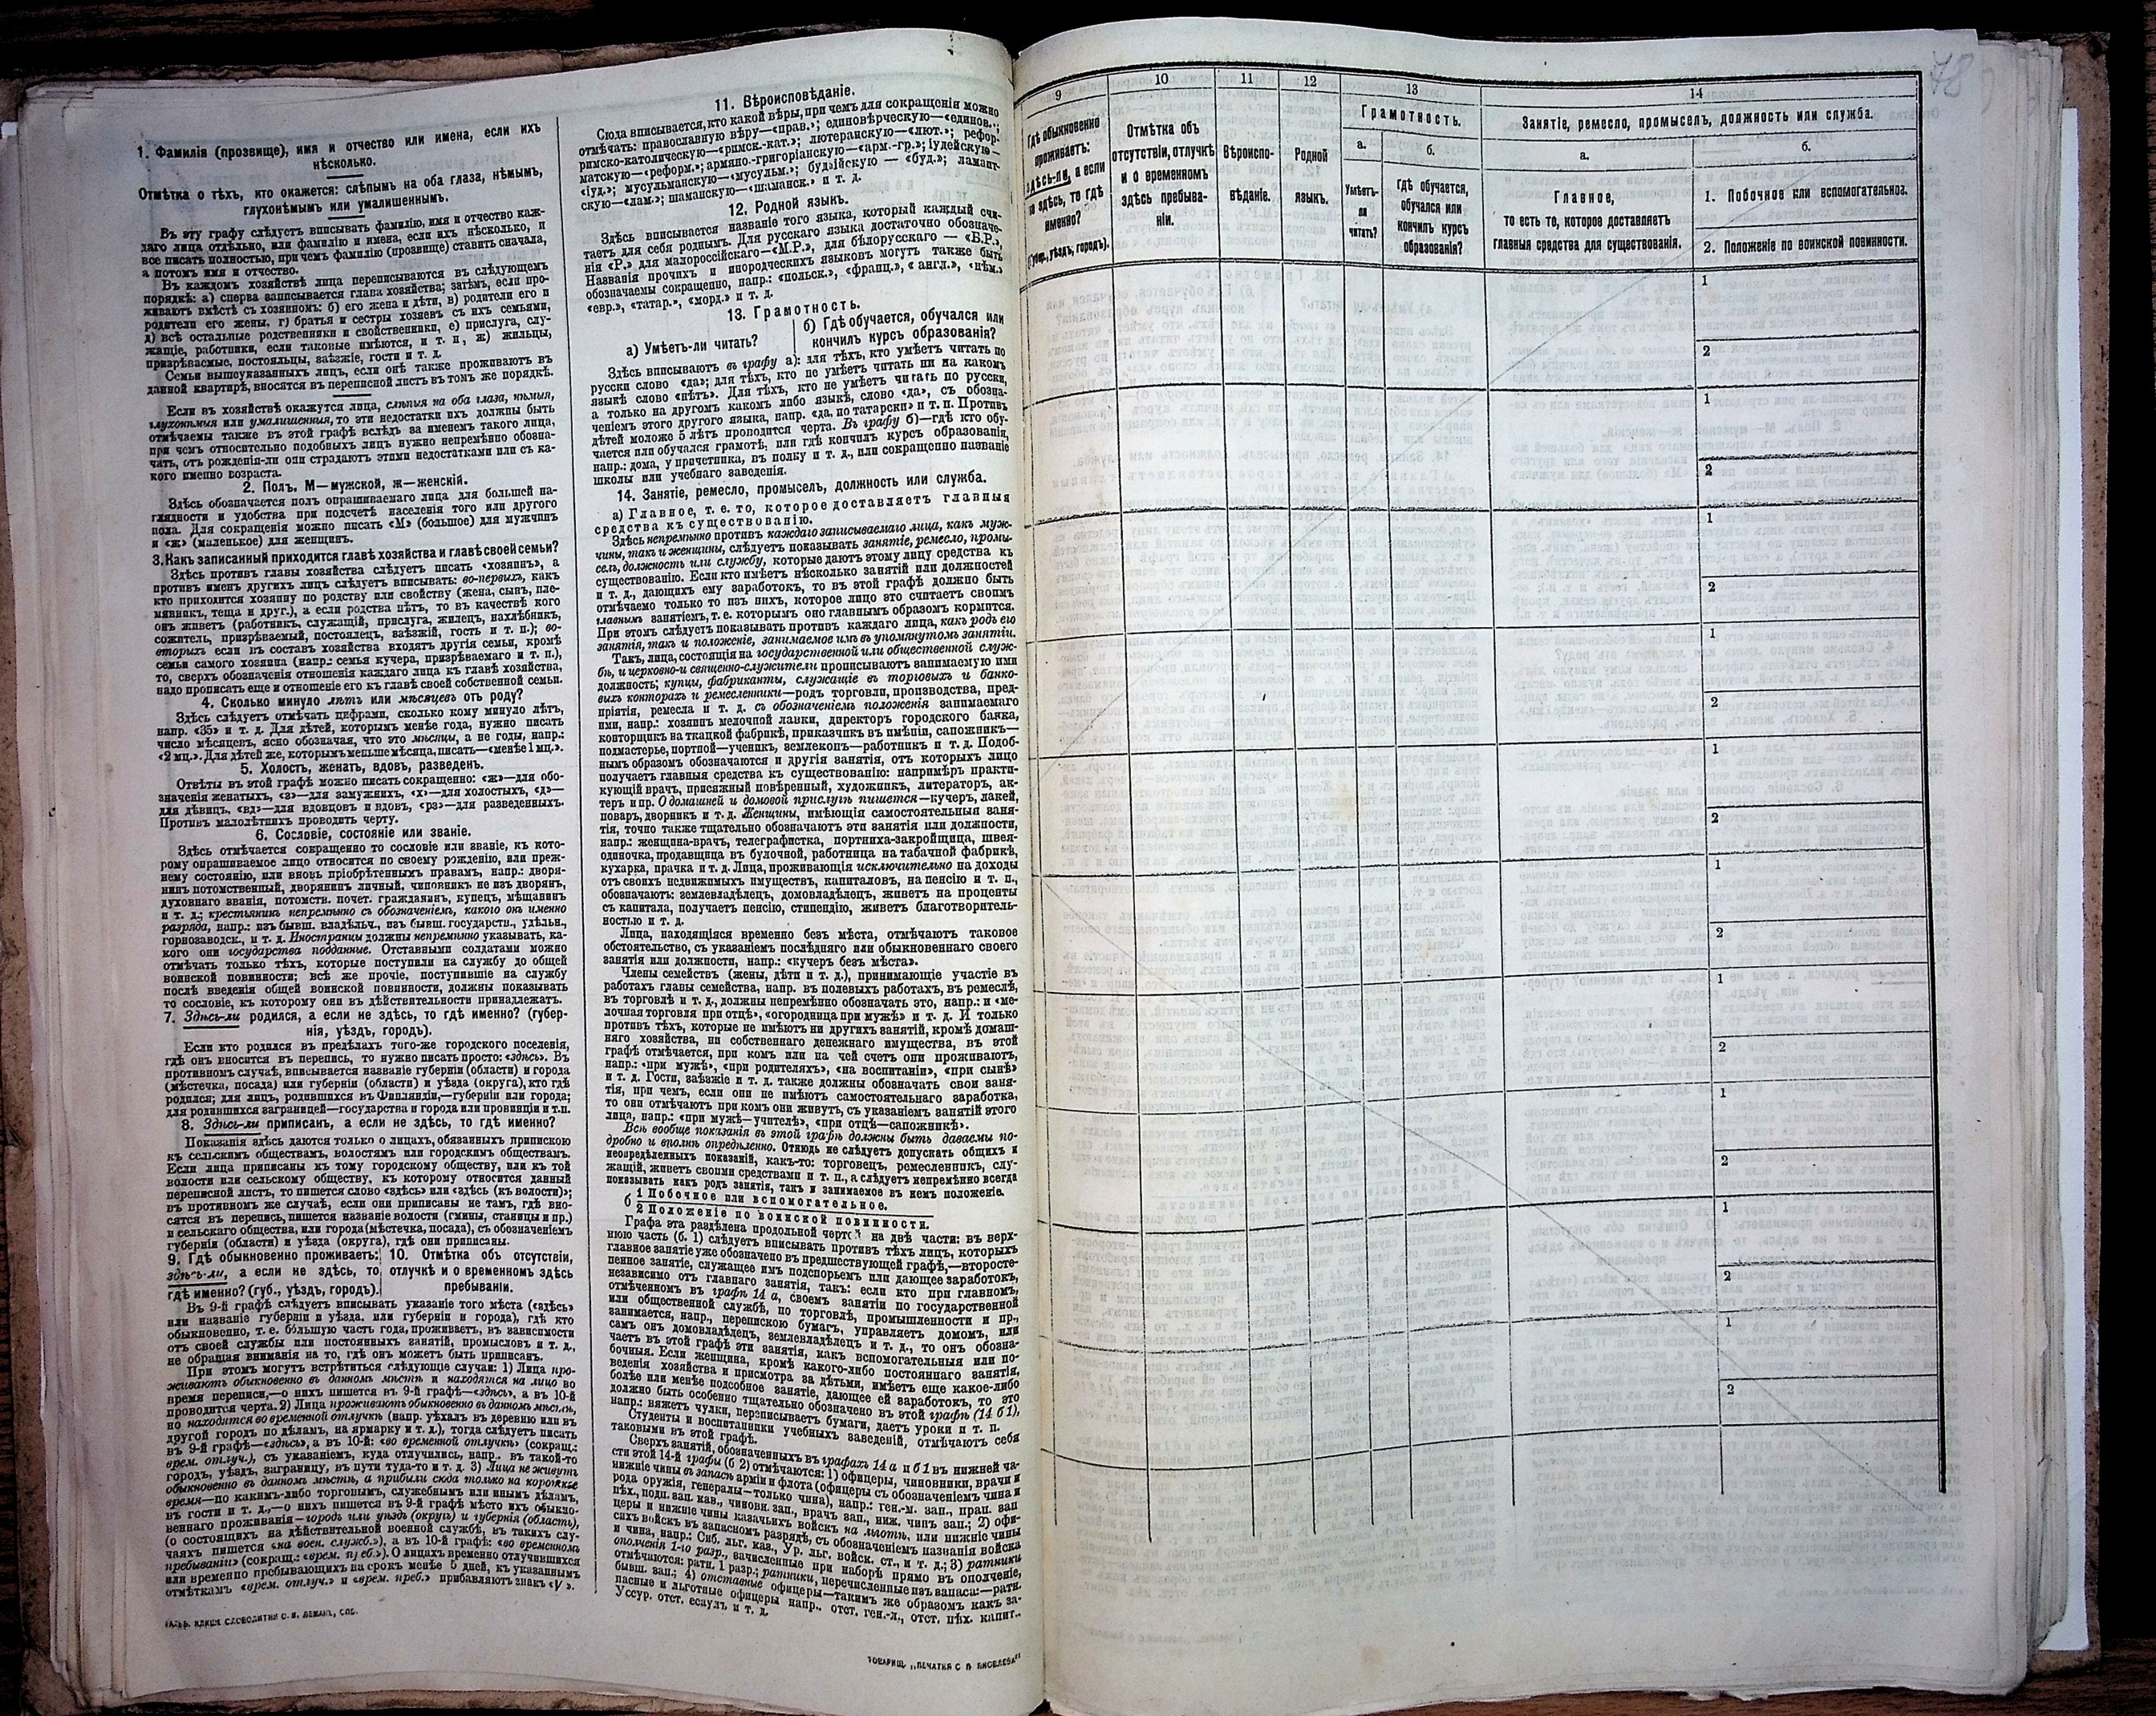 1. Фамилія (прозвище), имя и отчество или имена, если ихъ
нѣсколько.
Отмѣтка о тѣхъ, кто окажется: слѣпымъ на оба глаза, нѣмымъ,
глухонѣмымъ или умалишеннымъ.
Въ эту графу слѣдуетъ вписывать фамилію, имя и отчество каж-
даго лица отдѣльно, или фамилію и имена, если ихъ нѣсколько, и
все писать полностью, при чемъ фамилію (прозвище) ставить сначала,
а потомъ имя и отчество.
Въ каждомъ хозяйствѣ лица переписываются въ слѣдующемъ
порядкѣ: а) сперва записывается глава хозяйства; затѣмъ, если про-
живаютъ вмѣстѣ съ хозяиномъ: б) его жена и дѣти, в) родители его и
родители его жены, г) братья и сестры хозяевъ съ ихъ семьями,
д) всѣ остальные родственники и свойственники, е) прислуга, слу-
жащіе, работники, если таковые имѣются, и т. п., ж) жильцы,
призрѣваемые, постояльцы, заѣзжіе, гости и т. д.
Семьи вышеуказанныхъ лицъ, если онѣ также проживаютъ въ
данной квартирѣ, вносятся въ переписной листъ въ томъ же порядкѣ.
Если въ хозяйствѣ окажутся лица, слѣпыя на оба глаза, нѣмыя,
глухонѣмыя или умалишенныя, то эти недостатки ихъ должны быть
отмѣчаемы также въ этой графѣ вслѣдъ за именемъ такого лица,
при чемъ относительно подобныхъ лицъ нужно непремѣнно обозна-
чать, отъ рожденія-ли они страдаютъ этими недостатками или съ ка-
кого именно возраста.
2. Полъ. М—мужской, ж—женскій.
Здѣсь обозначается полъ опрашиваемаго лица для большей на-
глядности и удобства при подсчетѣ населенія того или другого
пола. Для сокращенія можно писать «М» (большое) для мужчинъ
и «ж» (маленькое) для женщинъ.
3. Какъ записанный приходится главѣ хозяйства и главѣ своей семьи?
Здѣсь противъ главы хозяйства слѣдуетъ писать «хозяинъ», а
противъ именъ другихъ лицъ слѣдуетъ вписывать: во-первыхъ, какъ
кто приходится хозяину по родству или свойству (жена, сынъ, пле-
мянникъ, теща и друг.), а если родства нѣтъ, то въ качествѣ кого
онъ живетъ (работникъ, служащій, прислуга, жилецъ, нахлѣбникъ,
сожитель, призрѣваемый, постоялецъ, заѣзжій, гость и т. п.); во-
вторыхъ если въ составъ хозяйства входятъ другія семьи, кромѣ
семьи самого хозяина (напр.: семья кучера, призрѣваемаго и т. п.),
то, сверхъ обозначенія отношенія каждаго лица къ главѣ хозяйства,
надо прописать еще и отношеніе его къ главѣ своей собственной семьи.
4. Сколько минуло лѣтъ или мѣсяцевъ отъ роду?
Здѣсь слѣдуетъ отмѣчать цифрами, сколько кому минуло лѣтъ,
напр. «35» и т. д. Для дѣтей, которымъ менѣе года, нужно писать
число мѣсяцевъ, ясно обозначая, что это мѣсяцы, а не годы, напр.:
«2 мц.». Для дѣтей же, которымъ меньше мѣсяца, писать—«менѣе 1 мц.».
5. Холостъ, женатъ, вдовъ, разведенъ.
Отвѣты въ этой графѣ можно писать сокращенно: «ж»—для обо-
значенія женатыхъ, «з»—для замужнихъ, «х»—для холостыхъ, «д»—
для дѣвицъ, «вд»—для вдовцовъ и вдовъ, «рз»—для разведенныхъ.
Противъ малолѣтнихъ проводить черту.
6. Сословіе, состояніе или званіе.
Здѣсь отмѣчается сокращенно то сословіе или званіе, къ кото-
рому опрашиваемое лицо относится по своему рожденію, или преж-
нему состоянію, или вновь пріобрѣтеннымъ правамъ, напр.: дворя-
нинъ потомственный, дворянинъ личный, чиновникъ не изъ дворянъ,
духовнаго званія, потомств. почет. гражданинъ, купецъ, мѣщанинъ
и т. д.; крестьянинъ непремѣнно съ обозначеніемъ, какого онъ именно
разряда, напр.: изъ бывш. владѣльч., изъ бывш. государств., удѣльн.,
горнозаводск., и т. д. Иностранцы должны непремѣнно указывать, ка-
кого они государства подданные. Отставными солдатами можно
отмѣчать только тѣхъ, которые поступили на службу до общей
воинской повинности; всѣ же прочіе, поступившіе на службу
послѣ введенія общей воинской повинности, должны показывать
то сословіе, къ которому они въ дѣйствительности принадлежатъ.
7. Здѣсь-ли родился, а если не здѣсь, то гдѣ именно? (губер-
нія, уѣздъ, городъ).
Если кто родился въ предѣлахъ того-же городского поселенія,
гдѣ онъ вносится въ перепись, то нужно писать просто: «здѣсь». Въ
противномъ случаѣ, вписывается названіе губерніи (области) и города
(мѣстечка, посада) или губерніи (области) и уѣзда (округа), кто гдѣ
родился; для лицъ, родившихся въ Финляндіи,—губерніи или города;
для родившихся заграницей—государства и города или провинціи и т.п.
8. Здѣсь-ли приписанъ, а если не здѣсь, то гдѣ именно?
Показанія здѣсь даются только о лицахъ, обязанныхъ припискою
къ сельскимъ обществамъ, волостямъ или городскимъ обществамъ.
Если лица приписаны къ тому городскому обществу, или къ той
волости или сельскому обществу, къ которому относится данный
переписной листъ, то пишется слово «здѣсь» или «здѣсь (къ волости)»;
въ противномъ же случаѣ, если они приписаны не тамъ, гдѣ вно-
сятся въ перепись, пишется названіе волости (гмины, станицы и пр.)
и сельскаго общества, или города (мѣстечка, посада), съ обозначеніемъ
губерніи (области) и уѣзда (округа), гдѣ они приписаны.
9. Гдѣ обыкновенно проживаетъ:
здѣсь-ли, а если не здѣсь, то
гдѣ именно? (губ., уѣздъ, городъ).
10. Отмѣтка объ отсутствіи,
отлучкѣ и о временномъ здѣсь
пребываніи.
Въ 9-й графѣ слѣдуетъ вписывать указаніе того мѣста («здѣсь»
или названіе губерніи и уѣзда, или губерніи и города), гдѣ кто
обыкновенно, т. е. бо́льшую часть года, проживаетъ, въ зависимости
отъ своей службы или постоянныхъ занятій, промысловъ и т. д.,
не обращая вниманія на то, гдѣ онъ можетъ быть приписанъ.
При этомъ могутъ встрѣтиться слѣдующіе случаи: 1) Лица про-
живаютъ обыкновенно въ данномъ мѣстѣ и находятся на лицо во
время переписи,—о нихъ пишется въ 9-й графѣ—«здѣсь», а въ 10-й
проводится черта. 2) Лица проживаютъ обыкновенно въ данномъ мѣстѣ,
но находятся во временной отлучкѣ (напр. уѣхалъ въ деревню или въ
другой городъ по дѣламъ, на ярмарку и т. д.), тогда слѣдуетъ писать
въ 9-й графѣ—«здѣсь», а въ 10-й: «во временной отлучкѣ» (сокращ.:
врем. отлуч.), съ указаніемъ, куда отлучились, напр.. въ такой-то
городъ, уѣздъ, заграницу, въ пути туда-то и т. д. 3) Лица не живутъ
обыкновенно въ данномъ мѣстѣ, а прибыли сюда только на короткое
время—по какимъ-либо торговымъ, служебнымъ или инымъ дѣламъ,
въ гости и т. д.,—о нихъ пишется въ 9-й графѣ мѣсто ихъ обыкно-
веннаго проживанія—городъ или уѣздъ (округъ) и губернія (область),
(о состоящихъ на дѣйствительной военной службѣ, въ такихъ слу-
чаяхъ пишется «на воен. служб.»), а въ 10-й графѣ: «во временномъ
пребываніи» (сокращ.: «врем. преб.»). О лицахъ временно отлучившихся
или временно пребывающихъ на срокъ менѣе 5 дней, къ указаннымъ
отмѣткамъ «врем. отлуч.» и «врем. преб.» прибавляютъ знакъ «V».
11. Вѣроисповѣданіе.
Сюда вписывается, кто какой вѣры, при чемъ для сокращенія можно
отмѣчать: православную вѣру—«прав.»; единовѣрческую—«единов.»;
римско-католическую—«римск.-кат.»; лютеранскую—«лют.»; рефор-
матскую—«реформ.»; армяно-григоріанскую—«арм.-гр.»; іудейскую—
«іуд.»; мусульманскую—«мусульм.»; буддійскую — «буд.»; ламаит-
скую—«лам.»; шаманскую—«шаманск.» и т. д.
12. Родной языкъ.
Здѣсь вписывается названіе того языка, который каждый счи-
таетъ для себя роднымъ. Для русскаго языка достаточно обозначе-
нія «Р.», для малороссійскаго—«М.Р.», для бѣлорусскаго — «Б.Р.»,
Названія прочихъ и инородческихъ языковъ могутъ также быть
обозначаемы сокращенно, напр.: «польск.», «франц.», « англ.», «нѣм.»
«евр.», «татар.», «морд.» и т. д.
13. Грамотность.
а) Умѣетъ-ли читать?
б) Гдѣ обучается, обучался или
кончилъ курсъ образованія?
Здѣсь вписываютъ въ графу а): для тѣхъ, кто умѣетъ читать по
русски слово «да»; для тѣхъ, кто не умѣетъ читать ни на какомъ
языкѣ слово «нѣтъ». Для тѣхъ, кто не умѣетъ читать по русски,
а только на другомъ какомъ либо языкѣ, слово «да», съ обозна-
ченіемъ этого другого языка, напр. «да, по татарски» и т. п. Противъ
дѣтей моложе 5 лѣтъ проводится черта. Въ графу б)—гдѣ кто обу-
чается или обучался грамотѣ, или гдѣ кончилъ курсъ образованія,
напр.: дома, у причетника, въ полку и т. д., или сокращенно названіе
школы или учебнаго заведенія.
14. Занятіе, ремесло, промыселъ, должность или служба.
а) Главное, т. е. то, которое доставляетъ главныя
средства къ существованію.
Здѣсь непремѣнно противъ каждаго записываемаго лица, какъ муж-
чины, такъ и женщины, слѣдуетъ показывать занятіе, ремесло, промы-
селъ, должность или службу, которые даютъ этому лицу средства къ
существованію. Если кто имѣетъ нѣсколько занятій или должностей
и т. д., дающихъ ему заработокъ, то въ этой графѣ должно быть
отмѣчаемо только то изъ нихъ, которое лицо это считаетъ своимъ
главнымъ занятіемъ, т. е. которымъ оно главнымъ образомъ кормится.
При этомъ слѣдуетъ показывать противъ каждаго лица, какъ родъ его
занятія, такъ и положеніе, занимаемое имъ въ упомянутомъ занятіи.
Такъ, лица, состоящія на государственной или общественной служ-
бѣ, и церковно-и священно-служители прописываютъ занимаемую ими
должность; купцы, фабриканты, служащіе въ торговыхъ и банко-
выхъ конторахъ и ремесленники—родъ торговли, производства, пред-
пріятія, ремесла и т. д. съ обозначеніемъ положенія занимаемаго
ими, напр.: хозяинъ мелочной лавки, директоръ городского банка,
конторщикъ на ткацкой фабрикѣ, приказчикъ въ имѣніи, сапожникъ—
подмастерье, портной—ученикъ, землекопъ—работникъ и т. д. Подоб-
нымъ образомъ обозначаются и другія занятія, отъ которыхъ лицо
получаетъ главныя средства къ существованію: напримѣръ практи-
кующій врачъ, присяжный повѣренный, художникъ, литераторъ, ак-
теръ и пр. О домашней и домовой прислугѣ пишется—кучеръ, лакей,
поваръ, дворникъ и т. д. Женщины, имѣющія самостоятельныя заня-
тія, точно также тщательно обозначаютъ эти занятія или должности,
напр.: женщина-врачъ, телеграфистка, портниха-закройщица, швея-
одиночка, продавщица въ булочной, работница на табачной фабрикѣ,
кухарка, прачка и т. д. Лица, проживающія исключительно на доходы
отъ своихъ недвижимыхъ имуществъ, капиталовъ, на пенсію и т. п.,
обозначаютъ: землевладѣлецъ, домовладѣлецъ, живетъ на проценты
съ капитала, получаетъ пенсію, стипендію, живетъ благотворитель-
ностью и т. д.
Лица, находящіяся временно безъ мѣста, отмѣчаютъ таковое
обстоятельство, съ указаніемъ послѣдняго или обыкновеннаго своего
занятія или должности, напр.: «кучеръ безъ мѣста».
Члены семействъ (жены, дѣти и т. д.), принимающіе участіе въ
работахъ главы семейства, напр. въ полевыхъ работахъ, въ ремеслѣ,
въ торговлѣ и т. д., должны непремѣнно обозначать это, напр.: и «ме-
лочная торговля при отцѣ», «огородница при мужѣ» и т. д. И только
противъ тѣхъ, которые не имѣютъ ни другихъ занятій, кромѣ домаш-
няго хозяйства, ни собственнаго денежнаго имущества, въ этой
графѣ отмѣчается, при комъ или на чей счетъ они проживаютъ,
напр.: «при мужѣ», «при родителяхъ», «на воспитаніи», «при сынѣ»
и т. д. Гости, заѣзжіе и т. д. также должны обозначать свои заня-
тія, при чемъ, если они не имѣютъ самостоятельнаго заработка,
то они отмѣчаютъ при комъ они живутъ, съ указаніемъ занятій этого
лица, напр.: «при мужѣ—учителѣ», «при отцѣ—сапожникѣ».
Всѣ вообще показанія въ этой графѣ должны быть даваемы по-
дробно и вполнѣ опредѣленно. Отнюдь не слѣдуетъ допускать общихъ и
неопредѣленныхъ показаній, какъ-то: торговецъ, ремесленникъ, слу-
жащій, живетъ своими средствами и т. п., а слѣдуетъ непремѣнно всегда
показывать какъ родъ занятія, такъ и занимаемое въ немъ положеніе.
б 1 Побочное или вспомогательное.
2 Положеніе по воинской повинности.
Графа эта раздѣлена продольной чертой на двѣ части: въ верх-
нюю часть (б. 1) слѣдуетъ вписывать противъ тѣхъ лицъ, которыхъ
главное занятіе уже обозначено въ предшествующей графѣ,—второсте-
пенное занятіе, служащее имъ подспорьемъ или дающее заработокъ,
независимо отъ главнаго занятія, такъ: если кто при главномъ,
отмѣченномъ въ графѣ 14 а, своемъ занятіи по государственной
или общественной службѣ, по торговлѣ, промышленности и пр.,
занимается, напр., перепискою бумагъ, управляетъ домомъ, или
самъ онъ домовладѣлецъ, землевладѣлецъ и т. д., то онъ обозна-
чаетъ въ этой графѣ эти занятія, какъ вспомогательныя или по-
бочныя. Если женщина, кромѣ какого-либо постояннаго занятія,
веденія хозяйства и присмотра за дѣтьми, имѣетъ еще какое-либо
болѣе или менѣе подсобное занятіе, дающее ей заработокъ, то это
должно быть особенно тщательно обозначено въ этой графѣ (14 б 1),
напр.: вяжетъ чулки, переписываетъ бумаги, даетъ уроки и т. п.
Студенты и воспитанники учебныхъ заведеній, отмѣчаютъ себя
таковыми въ этой графѣ.
Сверхъ занятій, обозначенныхъ въ графахъ 14 а и б 1 въ нижней ча-
сти этой 14-й графы (б 2) отмѣчаются: 1) офицеры, чиновники, врачи и
нижніе чины въ запасѣ арміи и флота (офицеры съ обозначеніемъ чина и
рода оружія, генералы—только чина), напр.: ген.-м. зап., прап. зап
пѣх., подп. зап. кав., чиновн. зап., врачъ зап., ниж. чинъ зап.; 2) офи-
церы и нижніе чины казачьихъ войскъ на льготѣ, или нижніе чины
сихъ войскъ въ запасномъ разрядѣ, съ обозначеніемъ названія войска
и чина, напр.: Сиб. льг. каз., Ур. льг. войск. ст., и т. д.; 3) ратники
ополченія 1-го разр., зачисленные при наборѣ прямо въ ополченіе,
отмѣчаются: ратн. 1 разр.; ратники, перечисленные изъ запаса:—ратн.
бывш. зап.; 4) отставные офицеры—такимъ же образомъ какъ за-
пасные и льготные офицеры напр., отст. ген.-л., отст. пѣх. капит.,
Уссур. отст. есаулъ и т. д.
ТОВАРИЩ. „ПЕЧАТНЯ С П ЯКОВЛЕВА“
78
9
10
11
12
13
14
Гдѣ обыкновенно
проживаетъ:
здѣсь-ли, а если
не здѣсь, то гдѣ
именно?
(Губер., уѣздъ, городъ).
Отмѣтка объ
отсутствіи, отлучкѣ
и о временномъ
здѣсь пребыва-
ніи.
Вѣроиспо-
вѣданіе.
Родной
языкъ.
Грамотность.
а.
Умѣетъ-
ли
читать?
б.
Гдѣ обучается,
обучался или
кончилъ курсъ
образованія?
Занятіе, ремесло, промыселъ, должность или служба.
а.
Главное,
то есть то, которое доставляетъ
главныя средства для существованія.
б.
1. Побочное или вспомогательное.
2. Положеніе по воинской повинности.
1
2
1
2
1
2
1
2
1
2
1
2
1
2
1
2
1
2
1
2